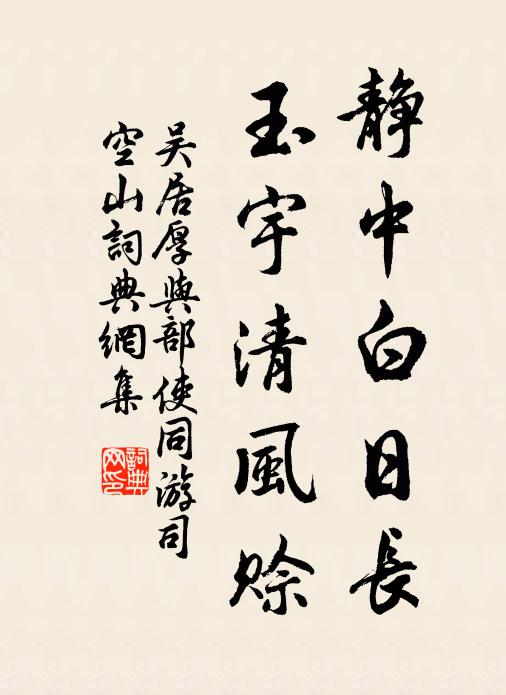 静中白日長
玉宇清風賒
吴居厚與部使同游司
空山詞典網集
詞典
网印